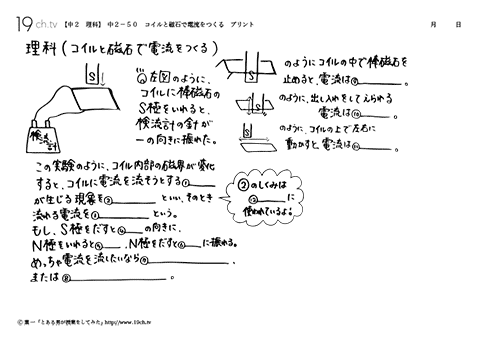 19ch.tv 【中2 理科】 中2-50 コイルと磁石で電流をつくる プリント 月 日
理科(コイルと磁石で電流をつくる)
S
検流計
左図のように、
コイルに棒磁石の
S極をいれると、
検流計の針が
ーの向きに振れた。
S
のようにコイルの中で棒磁石を
止めると、電流は⑨
のように、出し入れをしてえられる
電流は⑩
S
のように、コイルの上で左右に
動かすと、電流は⑪
この実験のように、コイル内部の磁界が変化
すると、コイルに電流を流そうとする①
が生じる現象を②といい、そのとき
流れる電流を③という。
もし、S極をだすと④の向きに、
N極をいれると⑤、N極をだすと⑥に振れる。
めっちゃ電流を流したいなら⑦、
または⑧。
②のしくみは
⑫に
使われているよ。
©葉一「とある男が授業をしてみた」http://www.19ch.tv